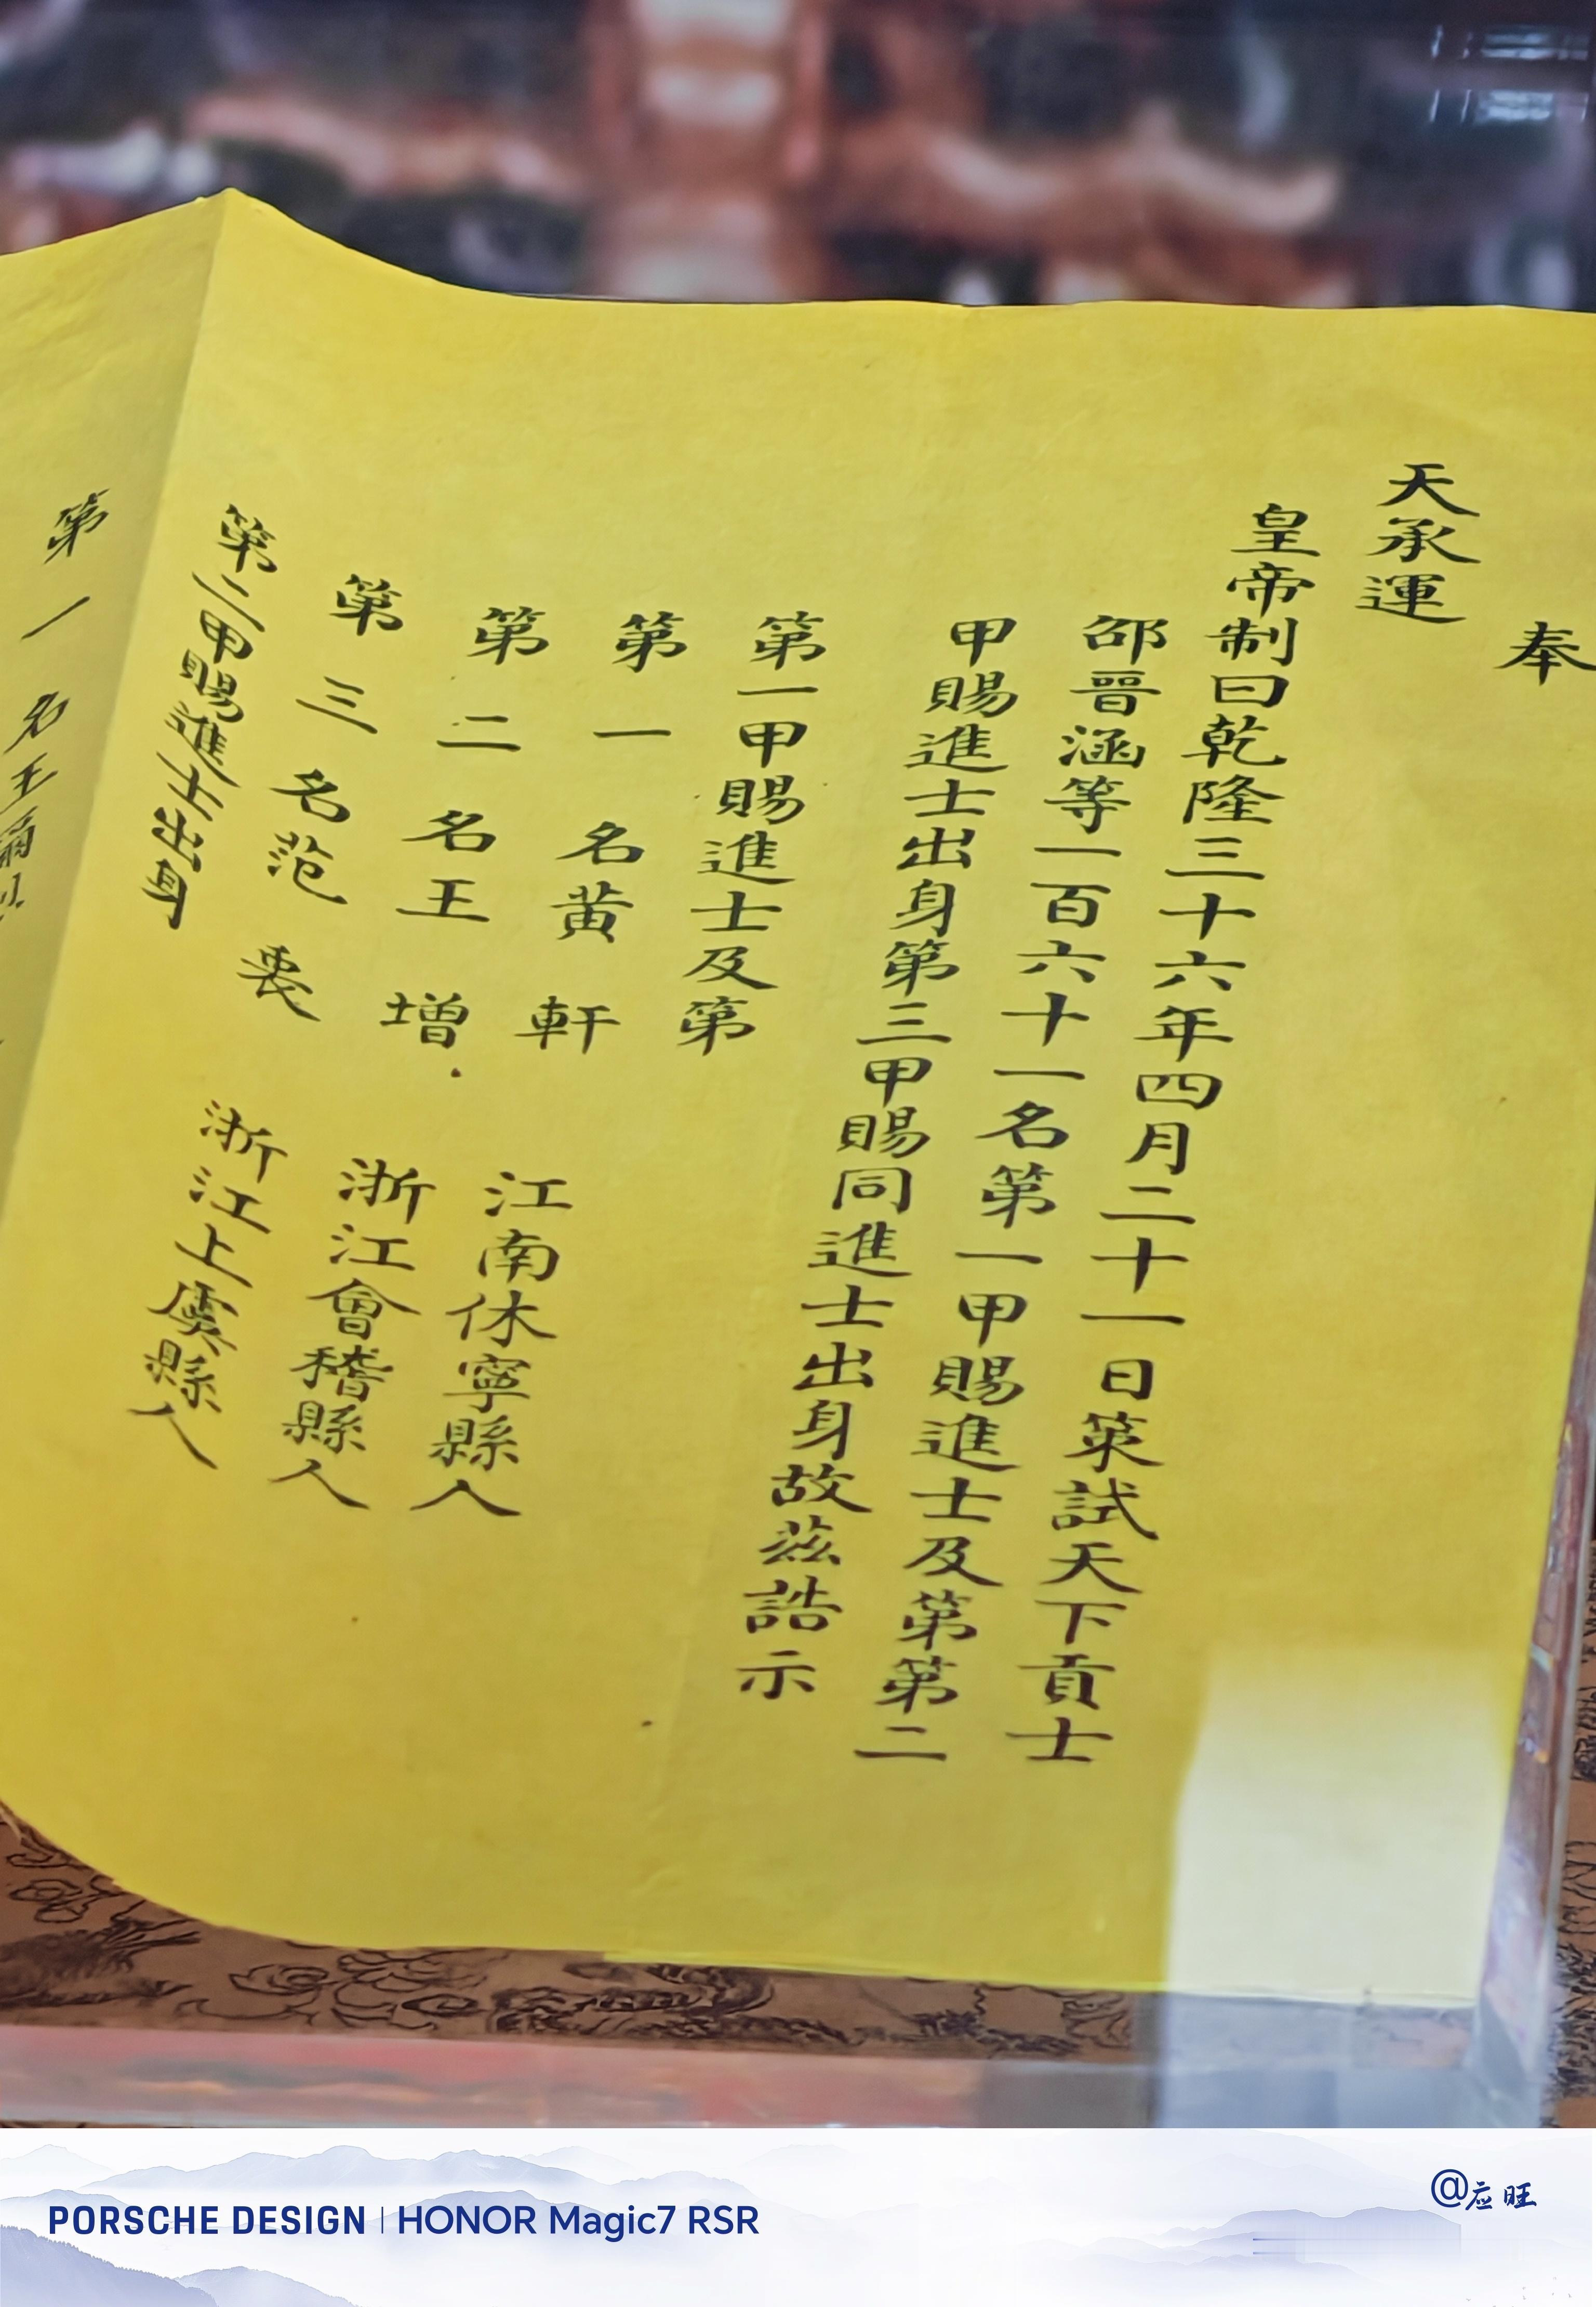 奉
天承運
皇帝制曰乾隆三十六年四月二十一日策試天下貢士
邵晉涵等一百六十一名第一甲賜進士及第第二
甲賜進士出身第三甲賜同進士出身故茲誥示
第一甲賜進士及第
第一名黃軒 江南休寧縣人
第二名王增 浙江會稽縣人
第三名范衷 浙江上虞縣人
第二甲賜進士出身
第一名王爾烈
PORSCHE DESIGN | HONOR Magic7 RSR
@应旺